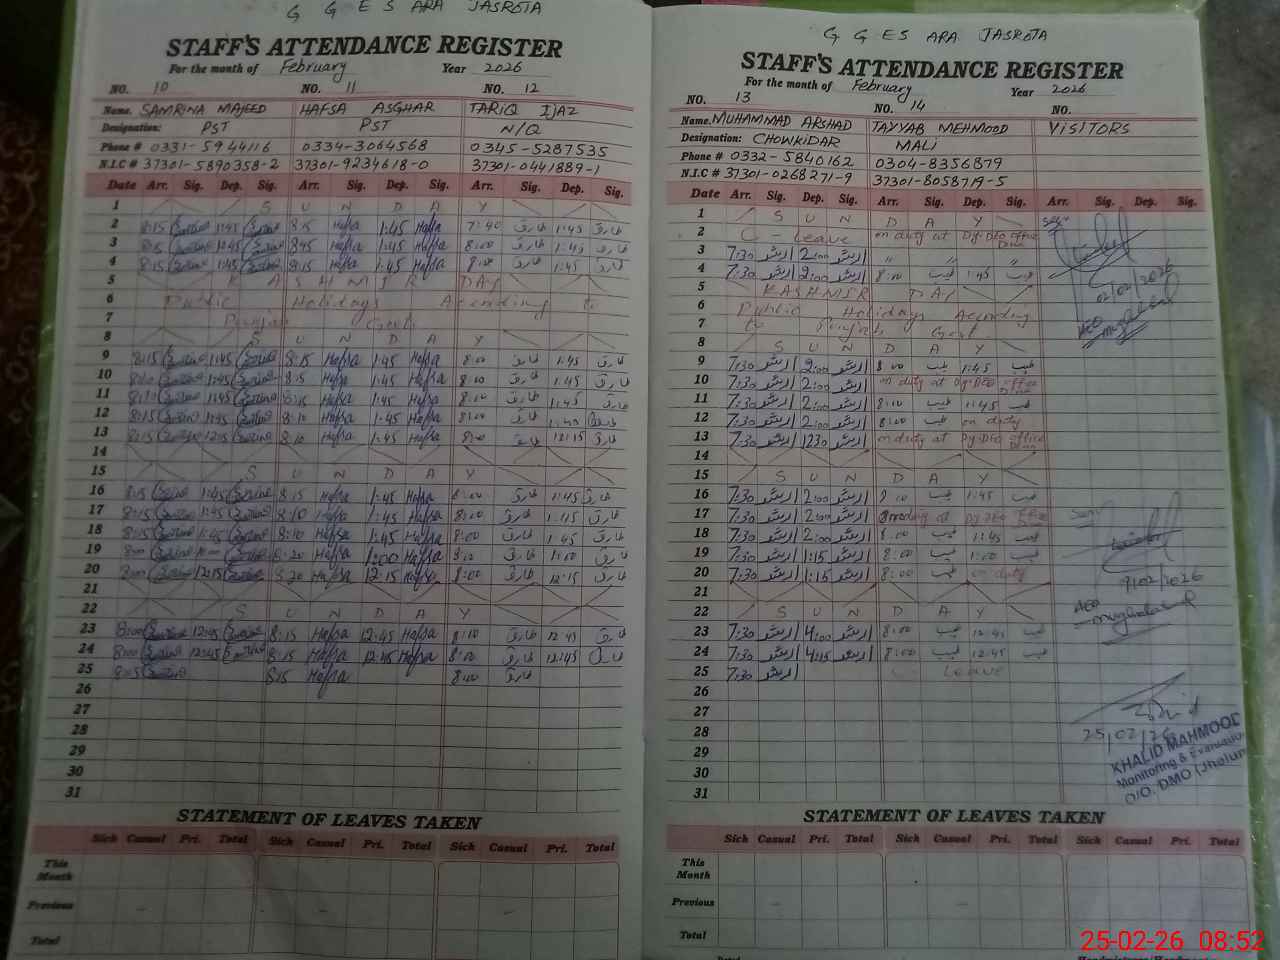 G G E S ARA JASROTA
STAFF'S ATTENDANCE REGISTER
For the month of February Year 2026
NO. 10 NO. 11 NO. 12
Name. SAMRINA MAJEED HAFSA ASGHAR TARIQ IJAZ
Designation: PST PST N/Q
Phone # 0331-5944116 0334-3064568 0345-5287535
N.I.C # 37301-5890358-2 37301-9234618-0 37301-0441889-1
Date Arr. Sig. Dep. Sig. Arr. Sig. Dep. Sig. Arr. Sig. Dep. Sig.
1 S U N D A Y
2 8:15 1:45 8:15 Hafsa 1:45 Hafsa 7:40 طارق 1:45 طارق
3 8:15 1:45 Hafsa 1:45 Hafsa 8:00 طارق 1:45 طارق
4 8:15 1:45 8:15 Hafsa 1:45 Hafsa 8:00 طارق 1:45 طارق
5 K A S H M I R DAY
6 Public Holidays According to
7 Punjab Govt.
8 S U N D A Y
9 8:15 1:45 8:15 Hafsa 1:45 Hafsa 8:00 طارق 1:45 طارق
10 1:45 8:15 Hafsa 1:45 Hafsa 8:00 طارق 1:45 طارق
11 1:45 8:15 Hafsa 1:45 Hafsa 8:00 طارق 1:45 طارق
12 8:15 1:45 8:10 Hafsa 1:45 Hafsa 8:00 طارق
13 8:15 12:15 8:10 Hafsa 1:45 Hafsa 8:00 طارق 12:15 طارق
14
15 S U N D A Y
16 8:15 1:45 8:15 Hafsa 1:45 Hafsa 8:00 طارق 1:45 طارق
17 8:15 1:45 8:10 Hafsa 1:45 Hafsa 8:00 طارق 1:45 طارق
18 8:15 1:45 8:10 Hafsa 1:45 Hafsa 8:00 طارق 1:45 طارق
19 8:00 8:20 Hafsa 1:00 Hafsa طارق 1:00 طارق
20 8:00 12:15 8:20 Hafsa 12:15 Hafsa 8:00 طارق 12:15 طارق
21
22 S U N D A Y
23 8:00 12:45 8:15 Hafsa 12:45 Hafsa 8:10 طارق 12:45 طارق
24 8:00 12:45 8:15 Hafsa 12:45 Hafsa 8:00 طارق 12:45 طارق
25 8:05 8:15 Hafsa 8:00 طارق
26
27
28
29
30
31
STATEMENT OF LEAVES TAKEN
Sich Casual Pri. Total Sich Casual Pri. Total Sich Casual Pri. Total
This Month
Previous
Total
G G E S ARA JASROTA
STAFF'S ATTENDANCE REGISTER
For the month of February Year 2026
NO. 13 NO. 14 NO.
Name. MUHAMMAD ARSHAD TAYYAB MEHMOOD VISITORS
Designation: CHOWKIDAR MALI
Phone # 0332-5840162 0304-8356879
N.I.C # 37301-0268271-9 37301-8058719-5
Date Arr. Sig. Dep. Sig. Arr. Sig. Dep. Sig. Arr. Sig. Dep. Sig.
1 S U N D A Y
2 C - Leave on duty at Dy: DEO office
3 7:30 ارشد 2:00 ارشد " " "
4 7:30 ارشد 2:00 ارشد 8:00 طیب 1:45 طیب
02/02/2026
5 KASHMIR DAY
6 Public Holidays According
7 to Punjab Govt
AEO
8 S U N D A Y
9 7:30 ارشد 2:00 ارشد 8:00 طیب 1:45 طیب
10 7:30 ارشد 2:00 ارشد on duty at Dy: DEO office
11 7:30 ارشد 2:00 ارشد 8:00 طیب 1:45 طیب
12 7:30 ارشد 2:00 ارشد 8:00 طیب on duty
13 7:30 ارشد 1230 ارشد on duty at Dy: DEO office
14
15 S U N D A Y
16 7:30 ارشد 2:00 ارشد طیب 1:45 طیب
17 7:30 ارشد 2:00 ارشد on duty at Dy: DEO office
18 7:30 ارشد 2:00 ارشد 8:00 طیب 1:45 طیب
19 7:30 ارشد 1:15 ارشد 8:00 طیب 1:00 طیب
20 7:30 ارشد 1:15 ارشد 8:00 طیب on duty
21
22 S U N D A Y
AEO
23 7:30 ارشد 4:00 ارشد 8:00 طیب 12:45 طیب
24 7:30 ارشد 4:15 ارشد 8:00 طیب 12:45 طیب
25 7:30 ارشد C - Leave
26
27
28
25/02/26
29
KHALID MAHMOOD
Monitoring & Evaluation
O/O. DMO (Jhelum
30
31
STATEMENT OF LEAVES TAKEN
Sich Casual Pri. Total Sich Casual Pri. Total Sich Casual Pri. Total
This Month
Previous
Total
25-02-26 08:52